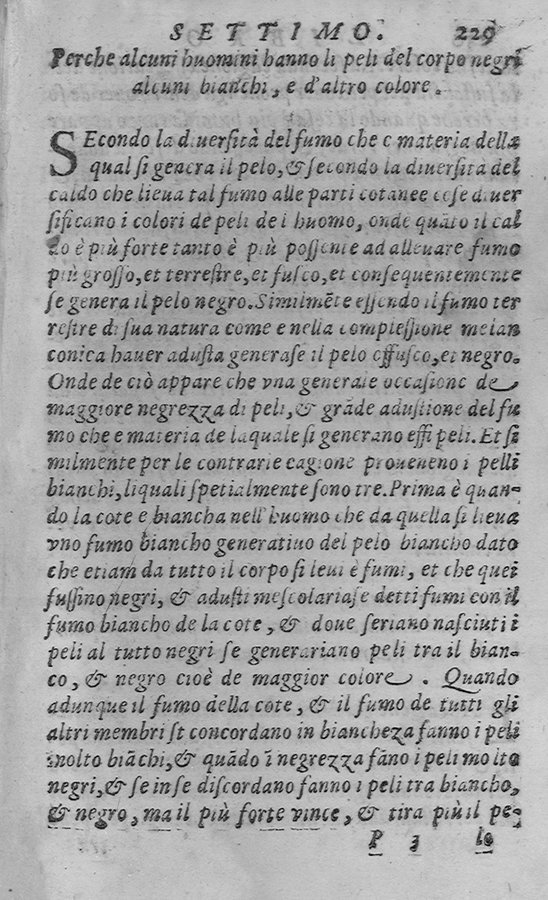 SETTIMO. 229
Perche alcuni huomini hanno li peli del corpo negri
alcuni bianchi, e d'altro colore.
SEcondo la diuersità del fumo che e materia della
qual si genera il pelo, & secondo la diuersità del
caldo che lieua tal fumo alle parti cotanee cose diuer
sificano i colori de peli de l huomo, onde quãto il cal
do è più forte tanto è più possente ad alleuare fumo
più grosso, et terrestre, et fusco, et consequentemente
se genera il pelo negro. Similmẽte essendo il fumo ter
restre di sua natura come e nella complessione melan
conica hauer adusta generase il pelo effusco, et negro.
Onde de ciò appare che vna generale occasione de
maggiore negrezza di peli, & grãde adustione del fu
mo che e materia de laquale si generano essi peli. Et si
milmente per le contrarie cagione proueneno i pelli
bianchi, liquali spetialmente sono tre. Prima è quan-
do la cote e biancha nell'huomo che da quella si lieua
vno fumo biancho generatiuo del pelo biancho dato
che etiam da tutto il corpo si leui è fumi, et che quei
fussino negri, & adusti mescolariase detti fumi con il
fumo biancho de la cote, & doue seriano nasciuti i
peli al tutto negri se generariano peli tra il bian-
co, & negro cioè de maggior colore. Quando
adunque il fumo della cote, & il fumo de tutti gli
altri membri st concordano in biancheza fanno i peli
molto biãchi, & quãdo ĩ negrezza fãno i peli molto
negri, & se inse discordano fanno i peli tra biancho,
& negro, ma il più forte vince, & tira più il pe-
P 3 lo